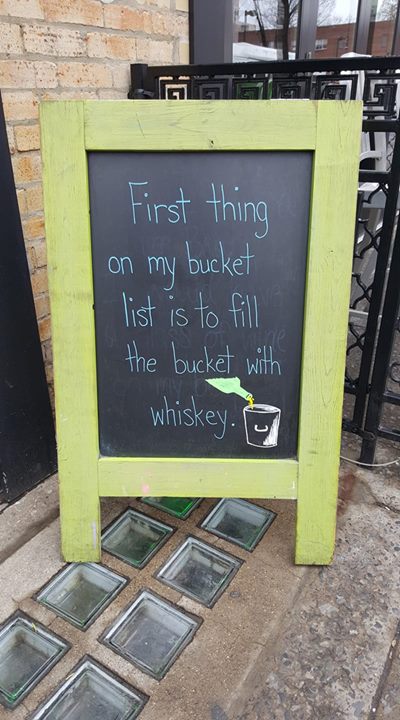 First thing
on my bucket
list is to fill
the bucket with
whiskey.